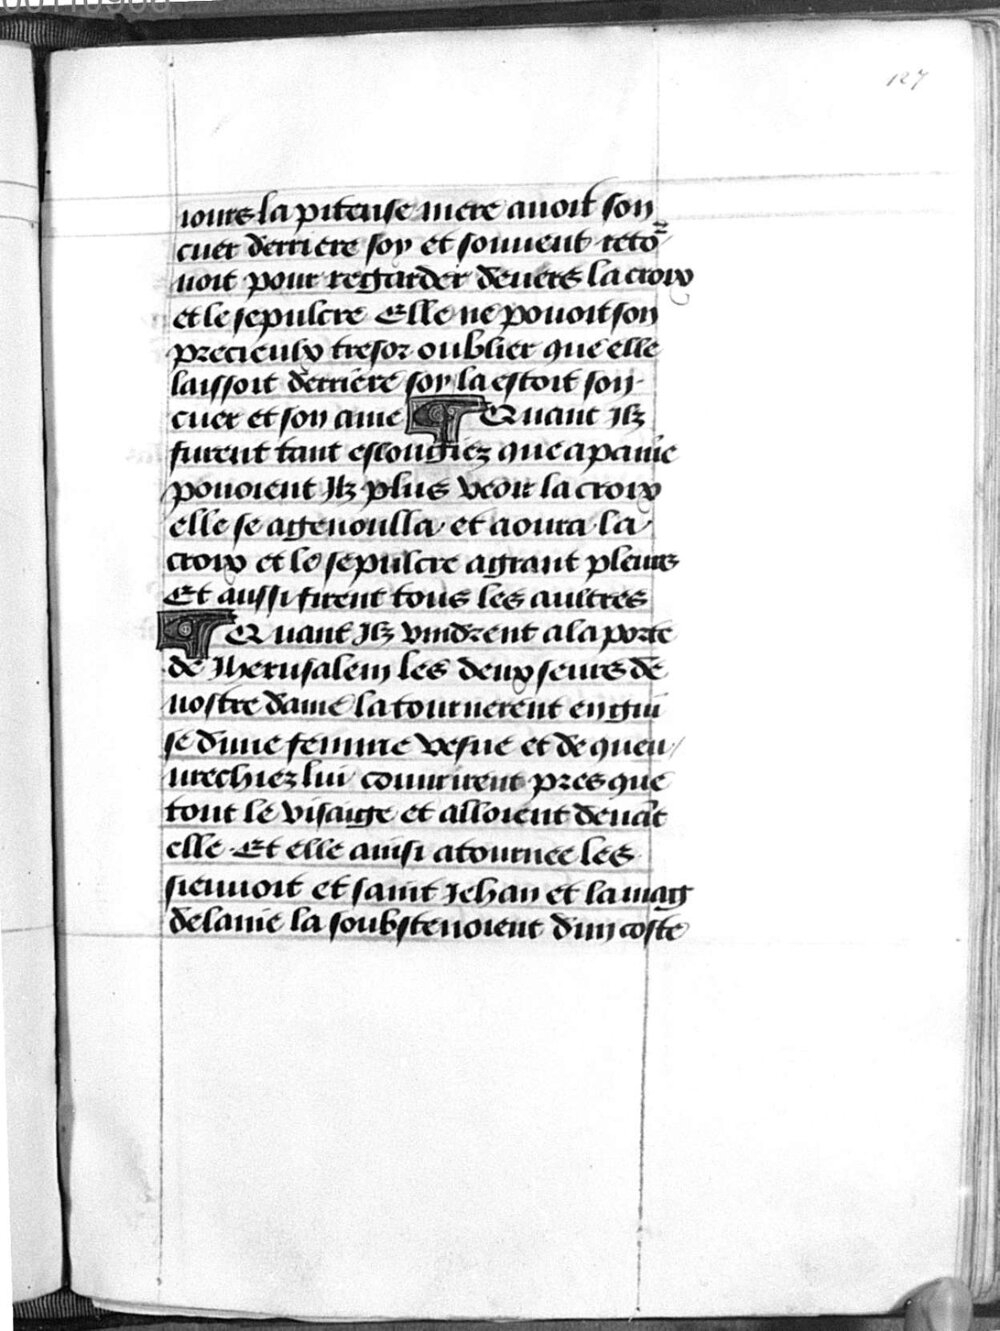 127
iours la piteuse mere auoit son
cuer derriere soy et souuent retor̃
noit pour regarder deuers la croix
et le sepulcre Elle ne pouoit son
precieulx tresor oublier que elle
laissoit derriere soy la estoit son
cuer et son ame ¶ Quant Ilz
furent tant eslongiez que a paine
pouoient Ilz plus veoir la croix
elle se agenoulla et aoura la
croix et le sepulcre a grant pleurs
Et aussi firent tous les aultres
¶ Quant Ilz vindrent a la porte
de Iherusalem les deux seurs de
nostre dame la tournerent en gui
se dune femme vesue et de queu/
urechiez lui couurirent pres que
tout le visaige et alloient deuãt
elle Et elle ainsi atournee les
sieuuoit et saint Jehan et la mag
delaine la soubstenoient dun coste